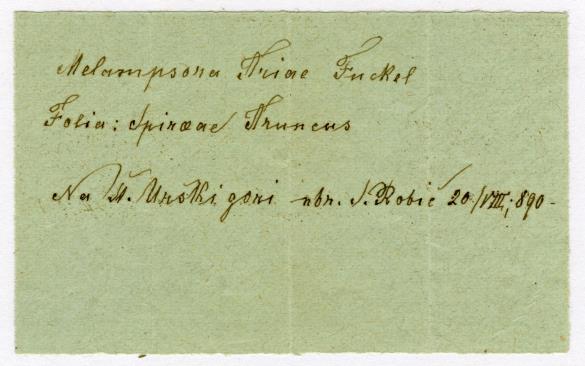 Melampsora Ariae Fuckel
Folia: Spiræae Aruncus
Na Š. Urški gori nbr. S. Robič 20/VIII; 890-